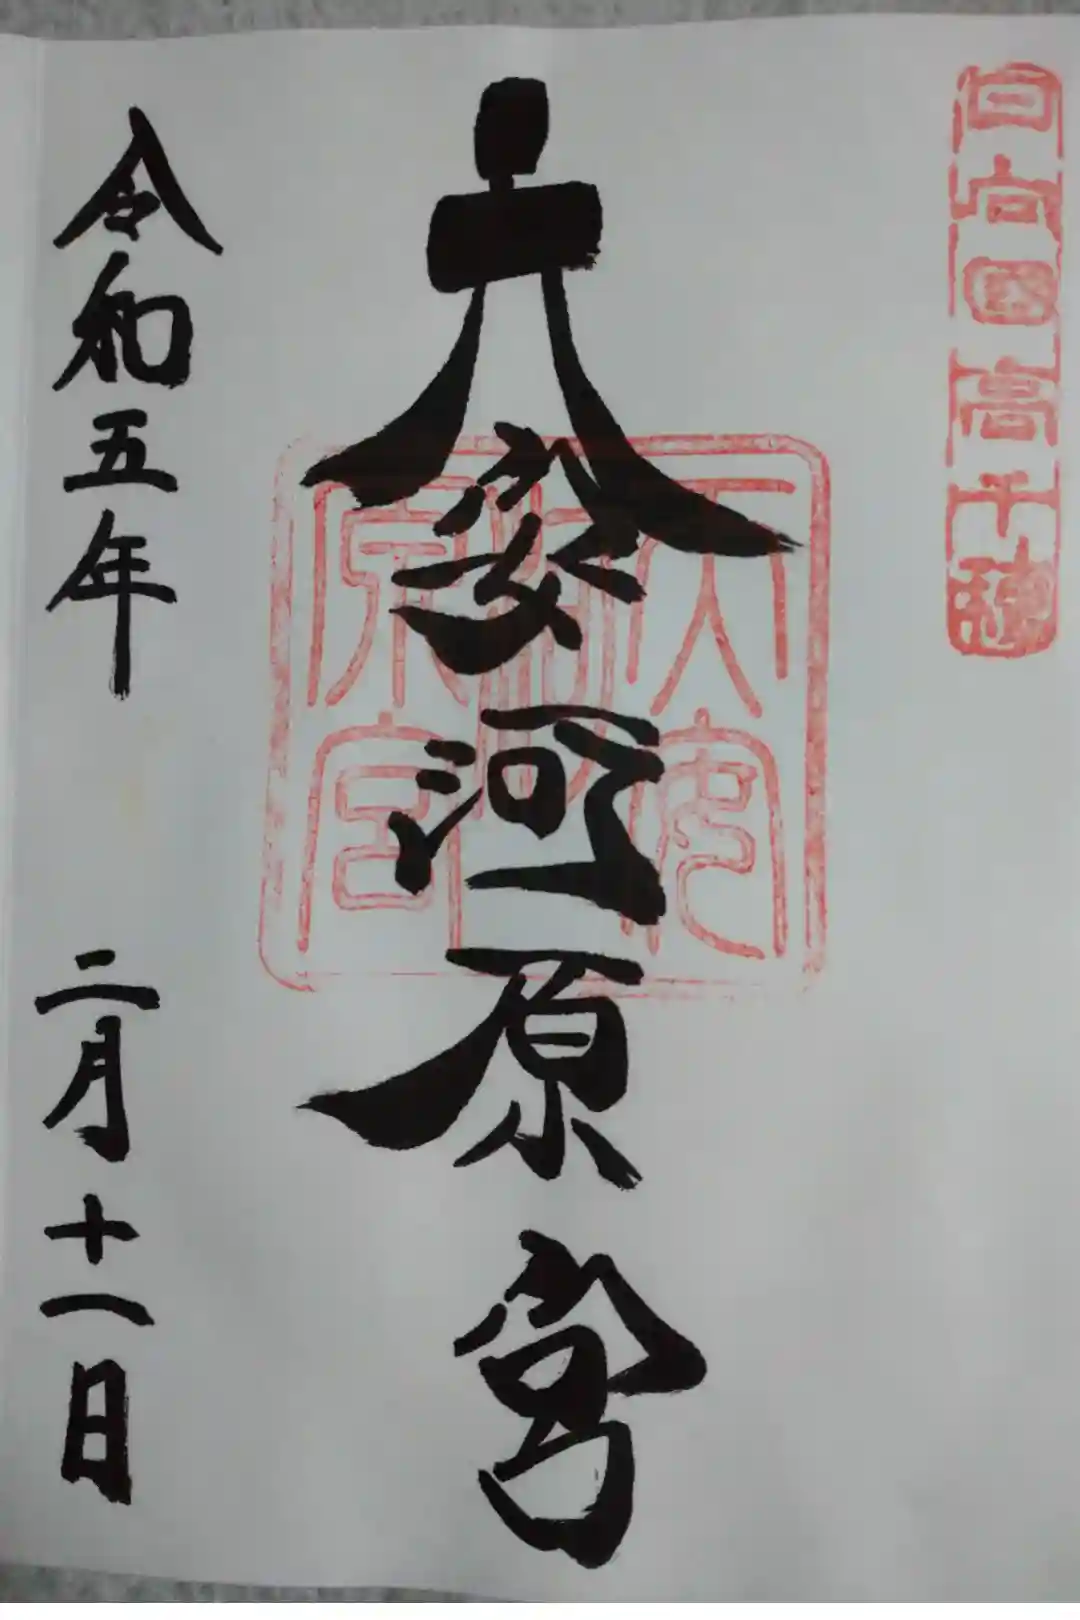 日向國高千穂
天安河原宮
天安河原宮
令和五年 二月十一日